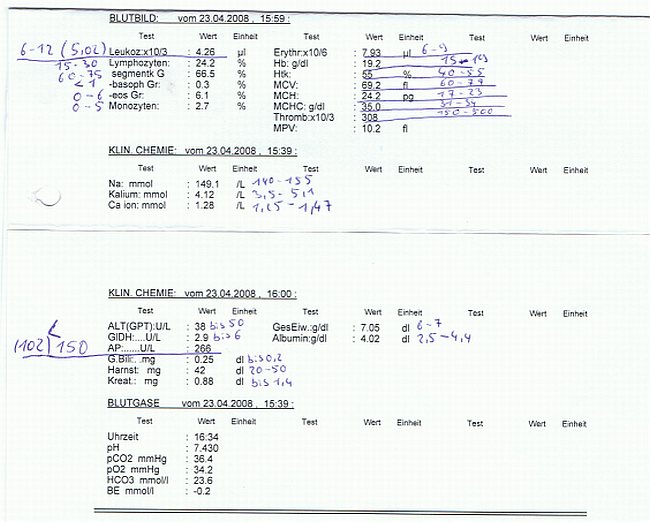 BLUTBILD: vom 23.04.2008 , 15:59 :
Test Wert Einheit Test Wert Einheit Test Wert Einheit
6-12 (5,02) Leukoz:x10/3 : 4.26 µl Erythr:x10/6 : 7.93 µl 6-9
15-30 Lymphozyten: : 24.2 % Hb: g/dl : 19.2 15-
60-75 segmentk G : 66.5 % Htk: : 55 % 40-55
<1 -basoph Gr: : 0.3 % MCV: : 69.2 fl 60-79
0-6 -eos Gr: : 6.1 % MCH: : 24.2 pg 17-23
0-5 Monozyten: : 2.7 % MCHC: g/dl : 35.0 31-34
Thromb:x10/3 : 308 150-500
MPV: : 10.2 fl
KLIN. CHEMIE: vom 23.04.2008 , 15:39 :
Test Wert Einheit Test Wert Einheit Test Wert Einheit
Na: mmol : 149.1 /L 140-155
Kalium: mmol : 4.12 /L 3,5-5,1
Ca ion: mmol : 1.28 /L 1,25-1,47
KLIN. CHEMIE: vom 23.04.2008 , 16:00 :
Test Wert Einheit Test Wert Einheit Test Wert Einheit
ALT(GPT):U/L : 38 bis 50 GesEiw.:g/dl : 7.05 dl 6-7
GlDH:....U/L : 2.9 bis 6 Albumin:g/dl : 4.02 dl 2,5-4,4
(102) < 150 AP:......U/L : 266
G.Bili:. .mg : 0.25 dl bis 0,2
Harnst: mg : 42 dl 20-50
Kreat.: mg : 0.88 dl bis 1,4
BLUTGASE vom 23.04.2008 , 15:39 :
Test Wert Einheit Test Wert Einheit Test Wert Einheit
Uhrzeit : 16:34
pH : 7.430
pCO2 mmHg : 36.4
pO2 mmHg : 34.2
HCO3 mmol/l : 23.6
BE mmol/l : -0.2